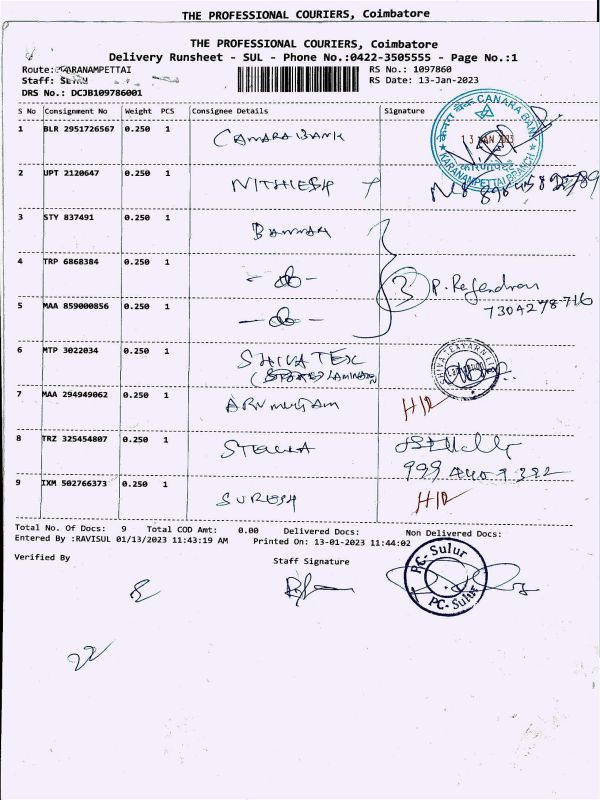 THE PROFESSIONAL COURIERS, Coimbatore
THE PROFESSIONAL COURIERS, Coimbatore
Delivery Runsheet - SUL - Phone No.:0422-3505555 - Page No.:1
Route: KARANAMPETTAI RS No.: 1097860
Staff: RS Date: 13-Jan-2023
DRS No.: DCJB109786001
S No Consignment No Weight PCS Consignee Details Signature
1 BLR 2951726567 0.250 1 CANARA BANK
CANARA BANK
13 JAN 2023
KARANAMPETTAI BRANCH
2 UPT 2120647 0.250 1 NITHIESH
3 STY 837491 0.250 1 BANNAR
4 TRP 6868384 0.250 1 -do- 3 P. Rajendran
5 MAA 859000856 0.250 1 -do- 7304278716
6 MTP 3022034 0.250 1 SHIVA TEX
7 MAA 294949062 0.250 1 ARUMUGAM H/R
8 TRZ 325454807 0.250 1 STELLA
9 IXM 502766373 0.250 1 SURESH H/R
Total No. Of Docs: 9 Total COD Amt: 0.00 Delivered Docs: Non Delivered Docs:
Entered By :RAVISUL 01/13/2023 11:43:19 AM Printed On: 13-01-2023 11:44:02
Verified By Staff Signature
PC-Sulur
PC-Sulur
8
22